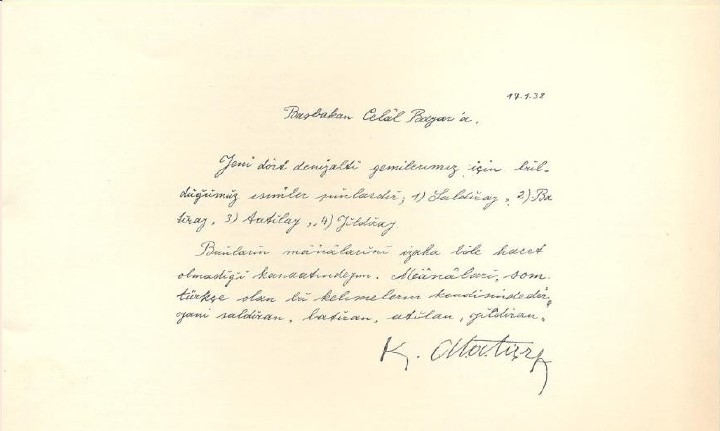 17.1.38
Başbakan Celâl Bayar'a.
Yeni dört denizaltı gemilerimiz için bul-
duğumuz isimler şunlardır; 1) Saldıray, 2) Ba
tıray, 3) Atılay, 4) Yıldıray
Bunların mânâlarını izaha bile hacet
olmadığı kanaatındeyim. Mânâları, som
türkçe olan bu kelimelerin kendisindedir,
yani saldıran, batıran, atılan, yıldıran.
K. Atatürk